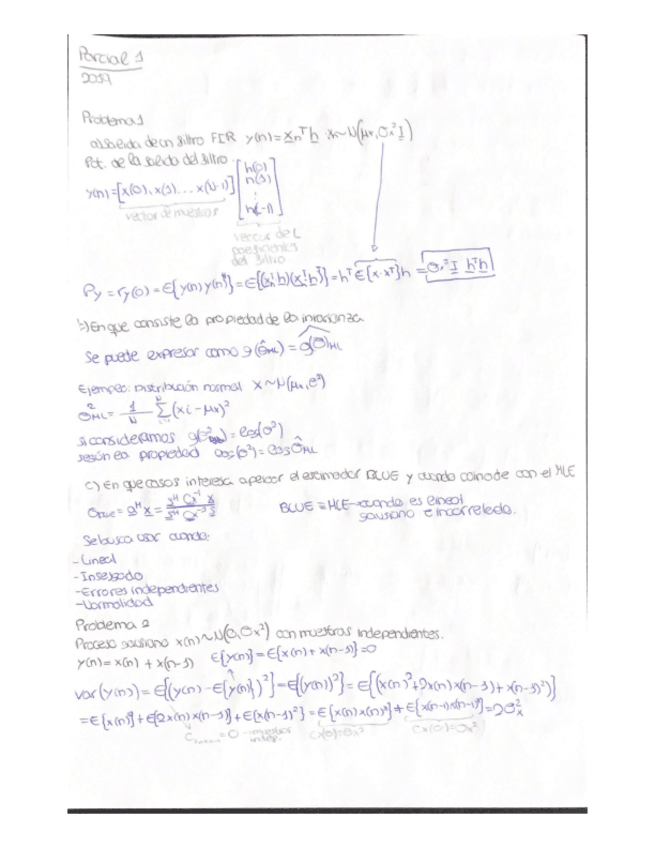 Parcial 1
2017
Problema 1
a) salida de un filtro FIR y(n) = x_n^T h x_n ~ N(μx, σx² I)
Pot. de la salida del filtro
y(n) = [x(0), x(1) ... x(N-1)] [h(0) h(1) ⋮ h(L-1)]
vector de muestras
vector de L coeficientes del filtro
Py = ry(0) = E{y(n) y(n)^H} = E{(x_n^T h)(x_n^T h)^T} = h^T E{x·x^T} h = σx² I h^T h
b) En que consiste la propiedad de la invarianza
Se puede expresar como g(θ̂_ML) = ĝ(θ)_ML
Ejemplo: Distribución normal x ~ N(μx, σ²)
σ̂²_ML = 1/N Σ (xi - μx)²
si consideramos g(σ²) = log(σ²)
según la propiedad log(σ²) = log σ̂_ML
c) En que casos interesa aplicar el estimador BLUE y cuando coincide con el MLE
θ_BLUE = a^H x = (s^H Cx^-1 x) / (s^H Cx^-1 s) BLUE = MLE → cuando es lineal
gausiano e incorrelado.
Se busca usar cuando:
- Lineal
- Insesgado
- Errores independientes
- Normalidad
Problema 2
Proceso gausiano x(n) ~ N(0, σx²) con muestras independientes.
y(n) = x(n) + x(n-1) E{y(n)} = E{x(n) + x(n-1)} = 0
var(y(n)) = E{(y(n) - E{y(n)})²} = E{(y(n))²} = E{(x(n)² + 2x(n)x(n-1) + x(n-1)²)}
= E{x(n)²} + E{2x(n)x(n-1)} + E{x(n-1)²} = E{x(n)x(n)^H} + E{x(n-1)x(n-1)^H} = 2σx²
= 0 → muestras indep. Cx(0) = σx² Cx(0) = σx²